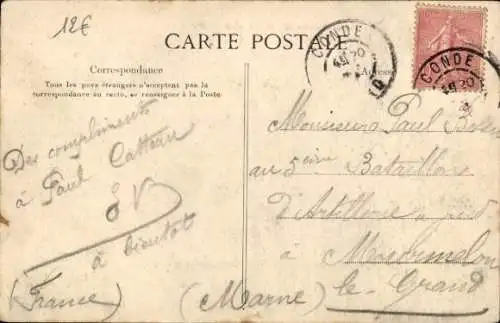 12€
CARTE POSTALE
CONDE
CONDE
Correspondance
Tous les pays étrangers n'acceptent pas la
correspondance au recto, se renseigner à la Poste
Adresse
Des compliments
à Paul Catteau
E V
à bientôt
(France)
Monsieur Paul
au 5ième Bataillon
d'Artillerie à pied
à Mourmelon
le Grand
(Marne)